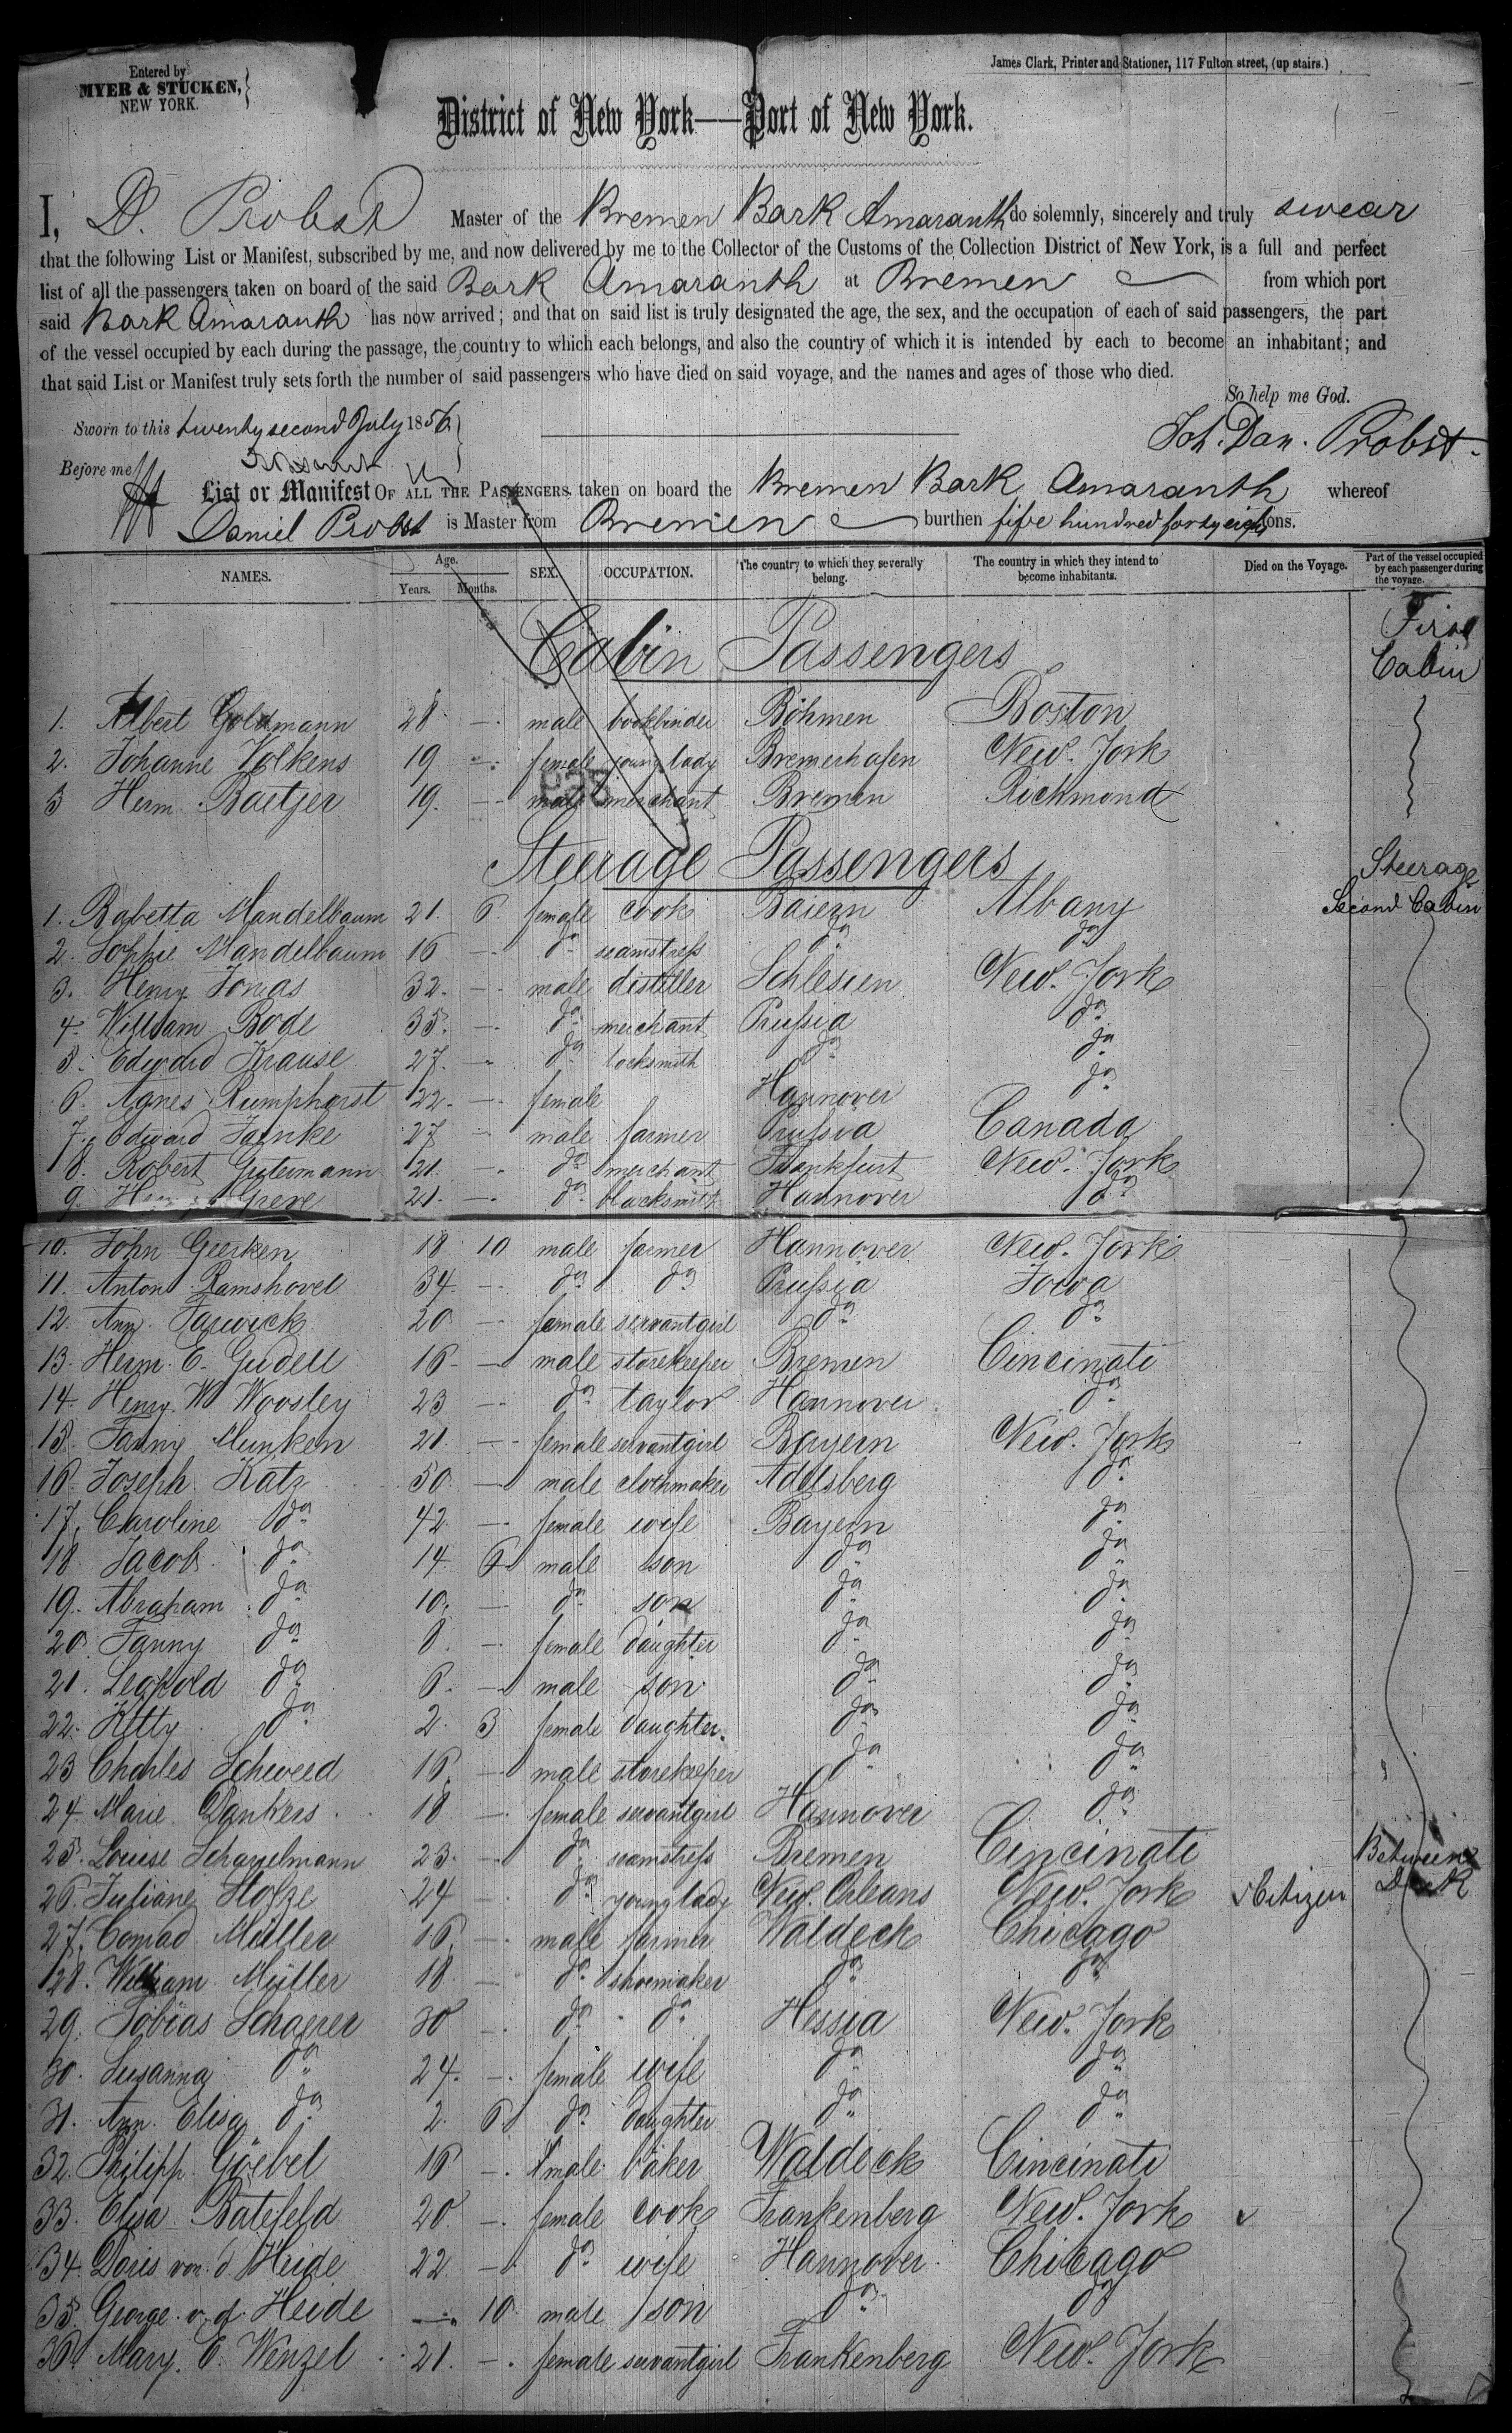 Entered by
MYER & STUCKEN,
NEW YORK.
James Clark, Printer and Stationer, 117 Fulton street, (up stairs.)
District of New York—Port of New York.
I, D. Probst Master of the Bremen Bark Amaranth do solemnly, sincerely and truly swear
that the following List or Manifest, subscribed by me, and now delivered by me to the Collector of the Customs of the Collection District of New York, is a full and perfect
list of all the passengers taken on board of the said Bark Amaranth at Bremen from which port
said Bark Amaranth has now arrived; and that on said list is truly designated the age, the sex, and the occupation of each of said passengers, the part
of the vessel occupied by each during the passage, the country to which each belongs, and also the country of which it is intended by each to become an inhabitant; and
that said List or Manifest truly sets forth the number of said passengers who have died on said voyage, and the names and ages of those who died.
So help me God.
Sworn to this twenty second July 1856
Joh. Dan. Probst.
Before me
List or Manifest OF ALL THE PASSENGERS taken on board the Bremen Bark Amaranth whereof
Daniel Probst is Master from Bremen burthen five hundred forty eight tons.
NAMES. Age. Years. Months. SEX. OCCUPATION. The country to which they severally belong. The country in which they intend to become inhabitants. Died on the Voyage. Part of the vessel occupied by each passenger during the voyage.
Cabin Passengers First Cabin
1. Albert Goldmann 28 — male bookbinder Böhmen Boston
2. Johanne Volkens 19 — female young lady Bremerhafen New York
3 Herm. Baetjer 19. — male merchant Bremen Richmond
Steerage Passengers Steerage
1. Babetta Mandelbaum 21. 6. female cook Baiern Albany Second Cabin
2. Sophie Mandelbaum 16 — do. seamstress do. do.
3. Henry Jonas 32. — male distiller Schlesien New York
4. William Bode 35. — do. merchant Prussia do.
5. Edward Krause 27. — do. locksmith do. do.
6. Agnes Rumphorst 22. — female Hannover do.
7. Edward Jahnke 27 — male farmer Prussia Canada
8. Robert Gutermann 21. — do. merchant Frankfurt New York
9. Greve 21. — do. blacksmith Hannover do.
10. John Geerken 18 10 male farmer Hannover New York
11. Anton Ramshovel 34. — do. do. Prussia Iowa
12. Ann. Farwick 20 — female servantgirl do. do.
13. Herm. E. Gudell 16. — male storekeeper Bremen Cincinati
14. Henry W. Woosley 23 — do. taylor Hannover do.
15. Fanny Munken 21. — female servantgirl Bayern New York
16. Joseph Katz 50. — male clothmaker Adelsberg do.
17. Caroline do. 42. — female wife Bayern do.
18 Jacob. do. 14. 6 male son do. do.
19. Abraham do. 10. — do. son do. do.
20. Fanny do. 8. — female daughter do. do.
21. Leopold do. 6. — male son do. do.
22. Kitty do. 2. 3 female daughter. do. do.
23 Charles Schweed 16. — male storekeeper do. do.
24. Marie Dankers 18 — female servantgirl Hannover do.
25. Louise 23. — do. seamstress Bremen Cincinati Between Deck
26. Juliane Holze 24 — do. young lady New Orleans New York Citizen
27. Conrad Müller 16. — male farmer Waldeck Chicago
28. William Müller 18. — do. shoemaker do. do.
29. Tobias Schaerer 30 — do. do. Hessia New York
30. Susanna do. 24. — female wife do. do.
31. Ann. Elisa do. 2. 6. do. daughter do. do.
32. Philipp Göebel 16 — male baker Waldeck Cincinati
33. Elisa Batefeld 20. — female cook Frankenberg New York
34. Doris von d. Heide 22. — do. wife Hannover Chicago
35. George v. d. Heide — 10. male son do. do.
36. Mary. E. Wenzel 21. — female servantgirl Frankenberg New York